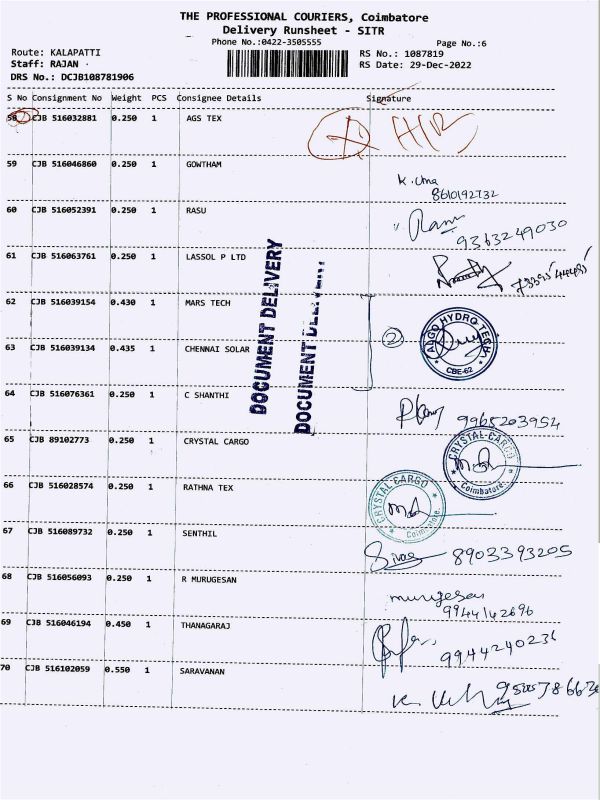 THE PROFESSIONAL COURIERS, Coimbatore
Delivery Runsheet - SITR
Phone No.:0422-3505555
Page No.:6
Route: KALAPATTI
RS No.: 1087819
Staff: RAJAN
RS Date: 29-Dec-2022
DRS No.: DCJB108781906
S No Consignment No Weight PCS Consignee Details Signature
58 CJB 516032881 0.250 1 AGS TEX
59 CJB 516046860 0.250 1 GOWTHAM
K. Uma
8610192732
60 CJB 516052391 0.250 1 RASU
9363249030
61 CJB 516063761 0.250 1 LASSOL P LTD
DOCUMENT DELIVERY
DOCUMENT DELIVERY
62 CJB 516039154 0.430 1 MARS TECH
2
ALGO HYDRO TECH
CBE-62
63 CJB 516039134 0.435 1 CHENNAI SOLAR
64 CJB 516076361 0.250 1 C SHANTHI
9965203954
65 CJB 89102773 0.250 1 CRYSTAL CARGO
CRYSTAL-CARGO
Coimbatore.
66 CJB 516028574 0.250 1 RATHNA TEX
CRYSTAL-CARGO
Coimbatore.
67 CJB 516089732 0.250 1 SENTHIL
8903393205
68 CJB 516056093 0.250 1 R MURUGESAN
murugesan
9944142696
69 CJB 516046194 0.450 1 THANAGARAJ
9944240236
70 CJB 516102059 0.550 1 SARAVANAN